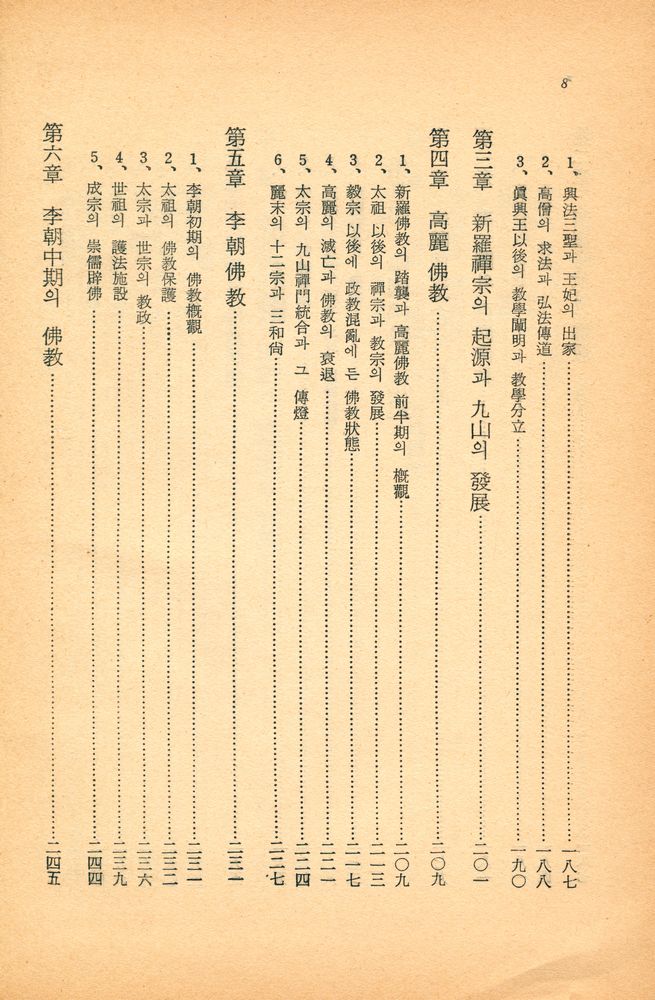 8
1、興法三聖과 王妃의 出家……一八七
2、高僧의 求法과 弘法傳道……一八八
3、眞興王以後의 教學闡明과 教學分立……一九〇
第三章 新羅禪宗의 起源과 九山의 發展……二〇一
第四章 高麗 佛教……二〇九
1、新羅佛教의 踏襲과 高麗佛教 前半期의 槪觀……二〇九
2、太祖 以後의 禪宗과 教宗의 發展……二一三
3、毅宗 以後에 政教混亂에 든 佛教狀態……二一七
4、高麗의 滅亡과 佛教의 衰退……二二一
5、太宗의 九山禪門統合과 그 傳燈……二二四
6、麗末의 十二宗과 三和尙……二二七
第五章 李朝佛教……二三一
1、李朝初期의 佛教槪觀……二三一
2、太祖의 佛教保護……二三二
3、太宗과 世宗의 教政……二三六
4、世祖의 護法施設……二三九
5、成宗의 崇儒辟佛……二四四
第六章 李朝中期의 佛教……二四五